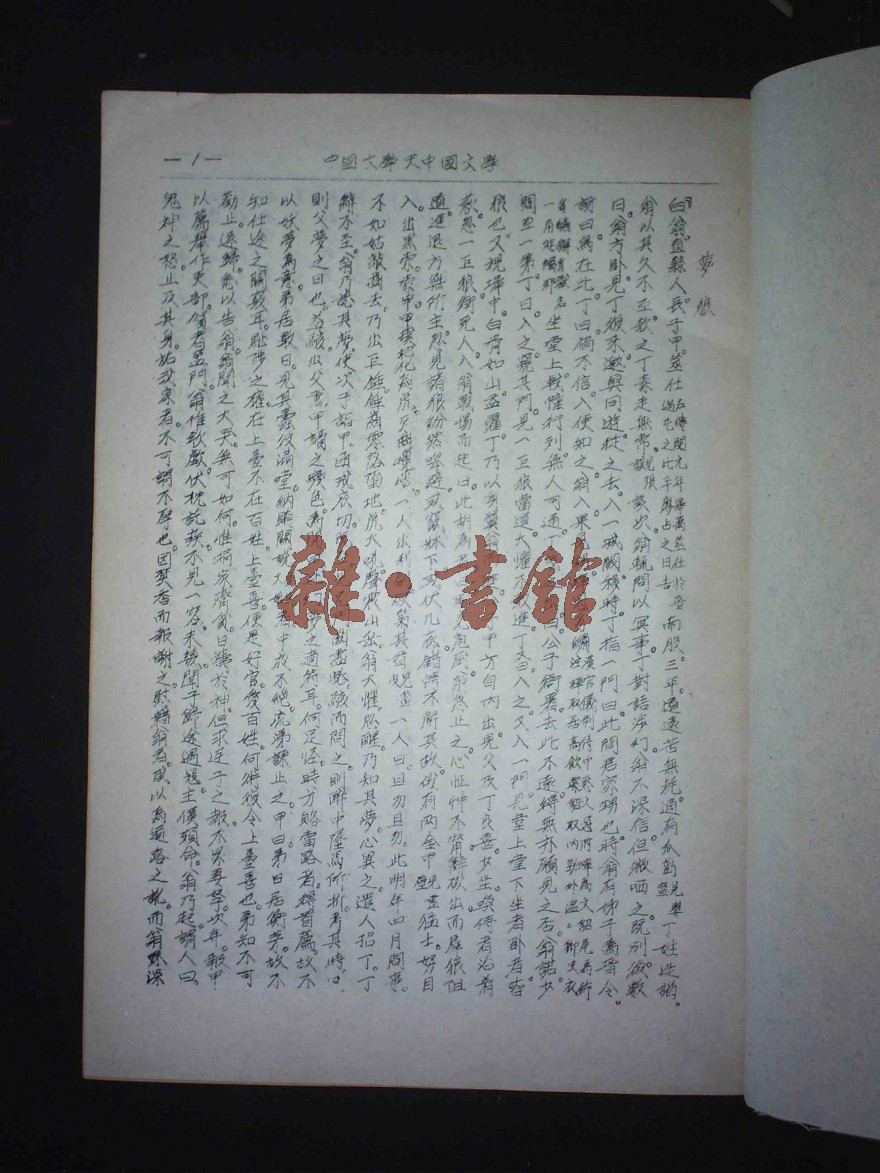 中國文學史中國文學
一/一
夢狼
白翁直隸人長子甲筮仕南服三年道遠苦無耗適有瓜葛丁姓造謁
翁以其久不至款之丁素走無常談次翁輒問以冥事丁對語涉幻翁不深信但微哂之既別後數
日翁方卧見丁復來邀與同遊從之去入一城闕移時丁指一門曰此間君家甥也時翁有姊子為晉令
訝曰烏在此丁曰倘不信入便知之翁入果見
坐堂上戟幢行列無人可通丁曰公子衙署去此不遠得無亦願見之否翁諾少
間至一第丁曰入之窺其門見一巨狼當道大懼不敢進丁又曰入之又入一門見堂上堂下坐者卧者皆
狼也又視墀中白骨如山益懼丁乃以身翼翁而進公子甲方自內出見父及丁良喜少坐喚侍者治肴
蔌忽一巨狼銜死人入翁戰惕而起曰此胡為者甲曰聊充庖廚翁急止之心怔忡不寧辭欲出而群狼阻
道進退方無所主忽見諸狼紛然嗥避或竄牀下或伏几底錯愕不解其故俄有兩金甲猛士努目
入出黑索索甲甲撲地化為虎牙齒巉巉一人出利劍欲梟其首一人曰且勿且勿此明年四月間事
不如姑敲齒去乃出巨錘錘齒零落墮地虎大吼聲震山岳翁大懼忽醒乃知其夢心異之遣人招丁丁
辭不至翁乃誌其夢使次子詣甲函戒哀切既至見兄門齒盡脫駭而問之則醉中墜馬所折考其時
則父夢之日也益駭出父書甲讀之變色為間曰此幻夢之適符耳何足怪時方賂當路者得首薦故不
以妖夢為意弟居數日見其蠹役滿堂納賄關說者中夜不絕流涕諫止之甲曰弟日居衡茅故不
知仕途之關竅耳黜陟之權在上臺不在百姓上臺喜便是好官愛百姓何術復令上臺喜也弟知不可
勸止遂歸悉以告翁翁聞之大哭無可如何惟捐家濟貧日禱於神但求逆子之報不累妻孥次年報甲
以薦舉作吏部賀者盈門翁惟欷歔伏枕託疾不見一客未幾聞子歸途遇寇主僕殞命翁乃起謂人曰
鬼神之怒止及其身祐我家者不可謂不厚也因焚香而報謝之慰藉翁者咸以為道路之訛而翁殊深
雜·書館